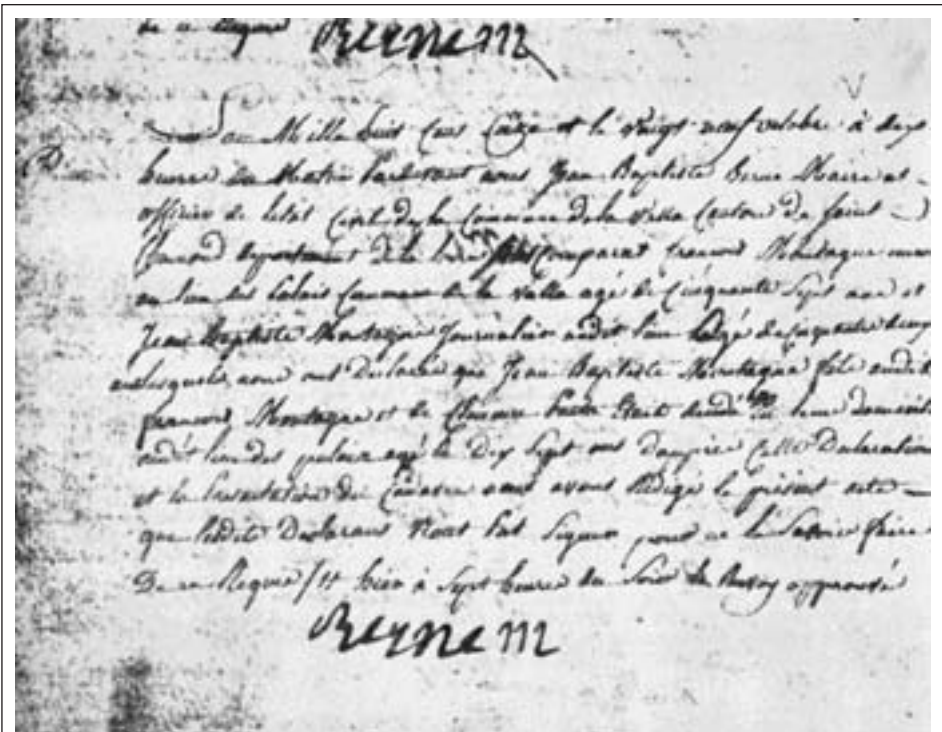 de ce Requis
Reyne m
L'an Mille huit Cent Saize et le Vingt neuf octobre à dix
heures du Matin Pardevant nous Jean Baptiste Berne Maire et
officier de l'état Civil de la Commune de la Valla Canton de Saint
Chamond département de la Loire Sont Comparus francois Montagne
au lieu des Palais Commune de la Valla agé de Cinquante Sept ans et
Jean Baptiste Montagne Journalier audit lieu agé de deux
Lesquels nous ont Déclarés que Jean Baptiste Montagne fils audit
francois Montagne et de Clemence Était domicile
audit lieu des palais agé de Dix Sept ans Daupres Cette Déclaration
et la Presentation du Cadavre nous avons Rédigé le présent acte
que lesdits Déclarans N'ont Pas Signer pour ne le Savoir faire
De ce Requis / et hier à Sept heures du Soir approuvé
Reyne m